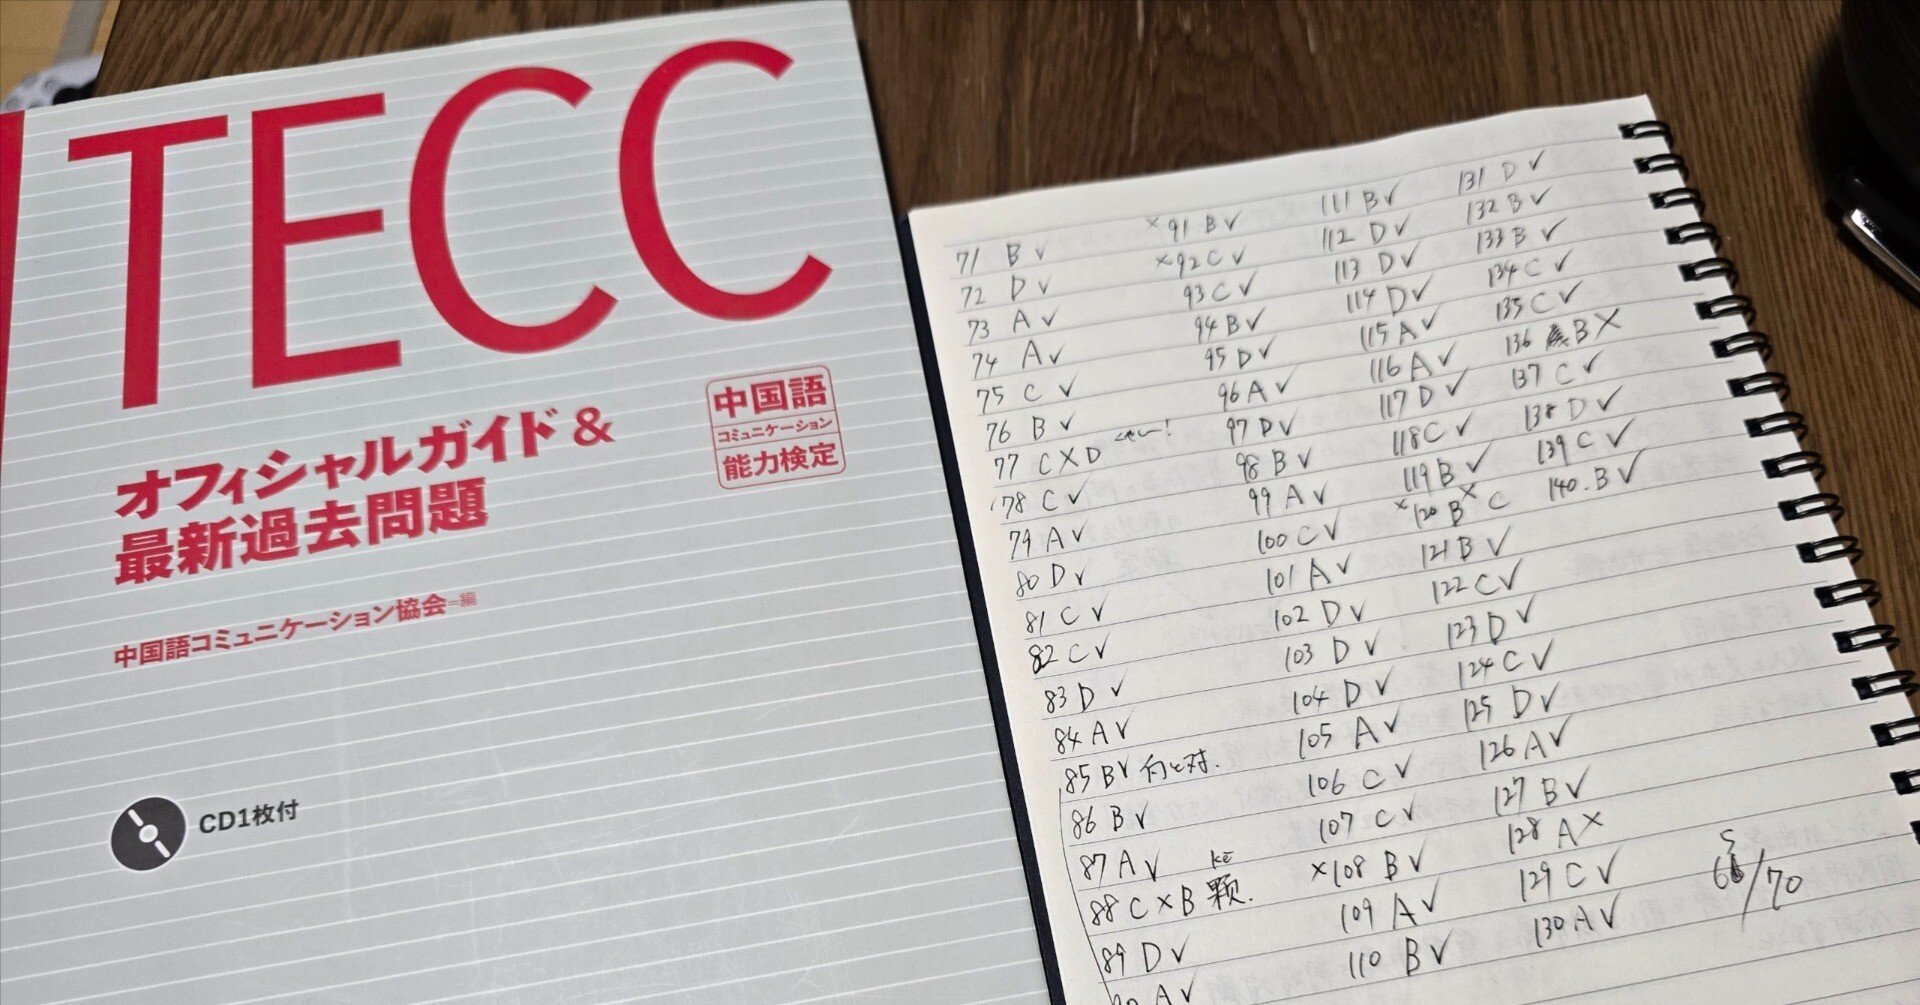 TECC
オフィシャルガイド&
最新過去問題
中国語
コミュニケーション
能力検定
中国語コミュニケーション協会=編
CD1枚付
71 B ✓
72 D ✓
73 A ✓
74 A ✓
75 C ✓
76 B ✓
77 C × D
78 C ✓
79 A ✓
80 D ✓
81 C ✓
82 C ✓
83 D ✓
84 A ✓
85 B ✓ 向と対.
86 B ✓
87 A ✓
kē
88 C × B 颗.
89 D ✓
90 A ✓
×91 B ✓
×92 C ✓
93 C ✓
94 B ✓
95 D ✓
96 A ✓
97 D ✓
98 B ✓
99 A ✓
100 C ✓
101 A ✓
102 D ✓
103 D ✓
104 D ✓
105 A ✓
106 C ✓
107 C ✓
×108 B ✓
109 A ✓
110 B ✓
111 B ✓
112 D ✓
113 D ✓
114 D ✓
115 A ✓
116 A ✓
117 D ✓
118 C ✓
119 B ✓
×120 B × C
121 B ✓
122 C ✓
123 D ✓
124 C ✓
125 D ✓
126 A ✓
127 B ✓
128 A ×
129 C ✓
130 A ✓
131 D ✓
132 B ✓
133 B ✓
134 C ✓
135 C ✓
136 B ×
137 C ✓
138 D ✓
139 C ✓
140. B ✓
65/70